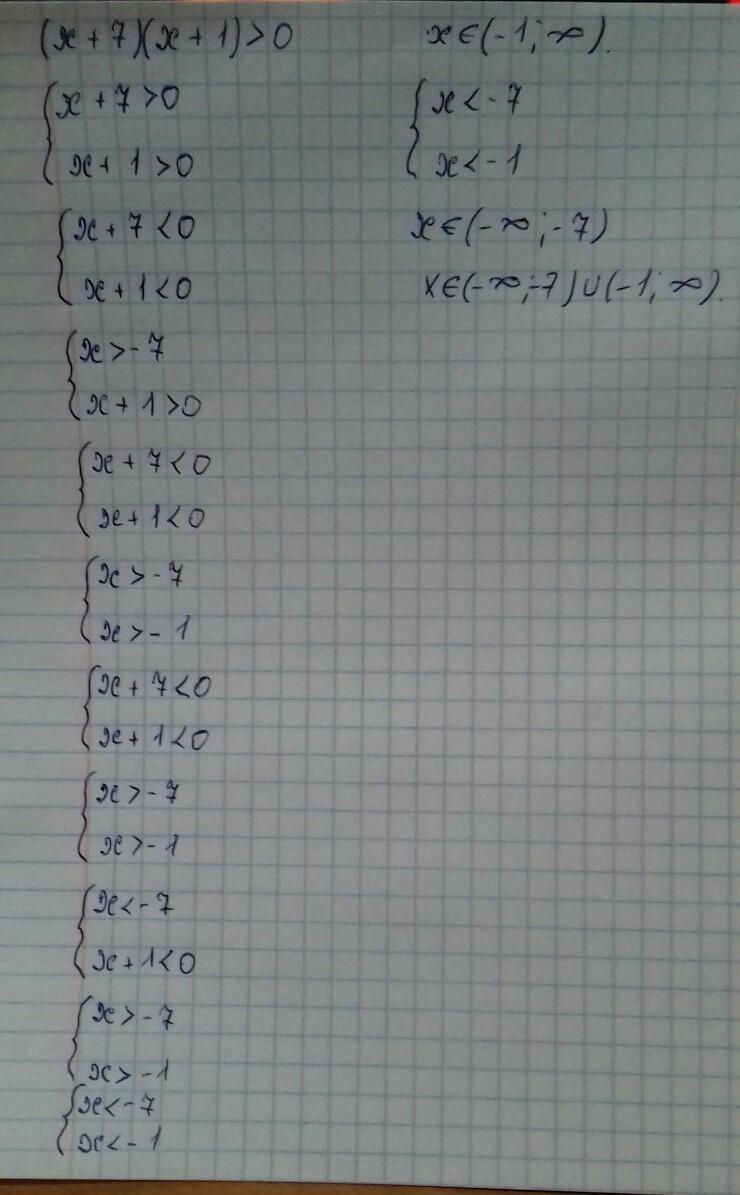 (x + 7)(x + 1) > 0
x + 7 > 0
x + 1 > 0
x + 7 < 0
x + 1 < 0
x > - 7
x + 1 > 0
x + 7 < 0
x + 1 < 0
x > - 7
x > - 1
x + 7 < 0
x + 1 < 0
x > - 7
x > - 1
x < - 7
x + 1 < 0
x > - 7
x > - 1
x < - 7
x < - 1
x ∈ (- 1; ∞).
x < - 7
x < - 1
x ∈ (- ∞; - 7)
x ∈ (- ∞; - 7) ∪ (- 1; ∞).